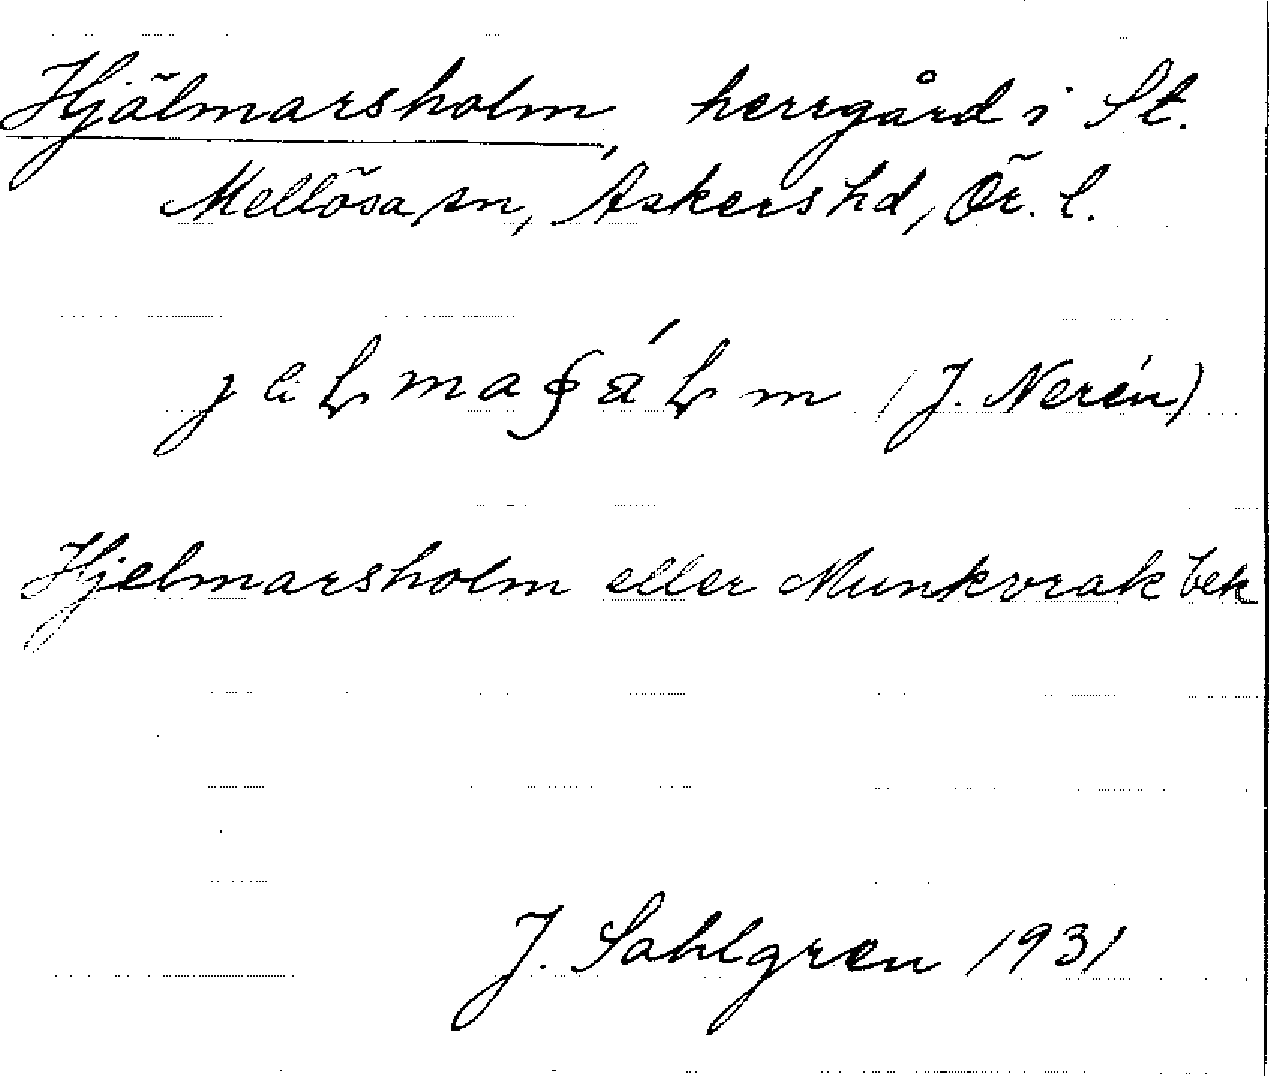 Hjälmarsholm, herrgård i St.
Mellösa sn, Askers hd, Ör. l.
(J. Nerén)
Hjelmarsholm eller Munkvrak bek
J. Sahlgren 1931